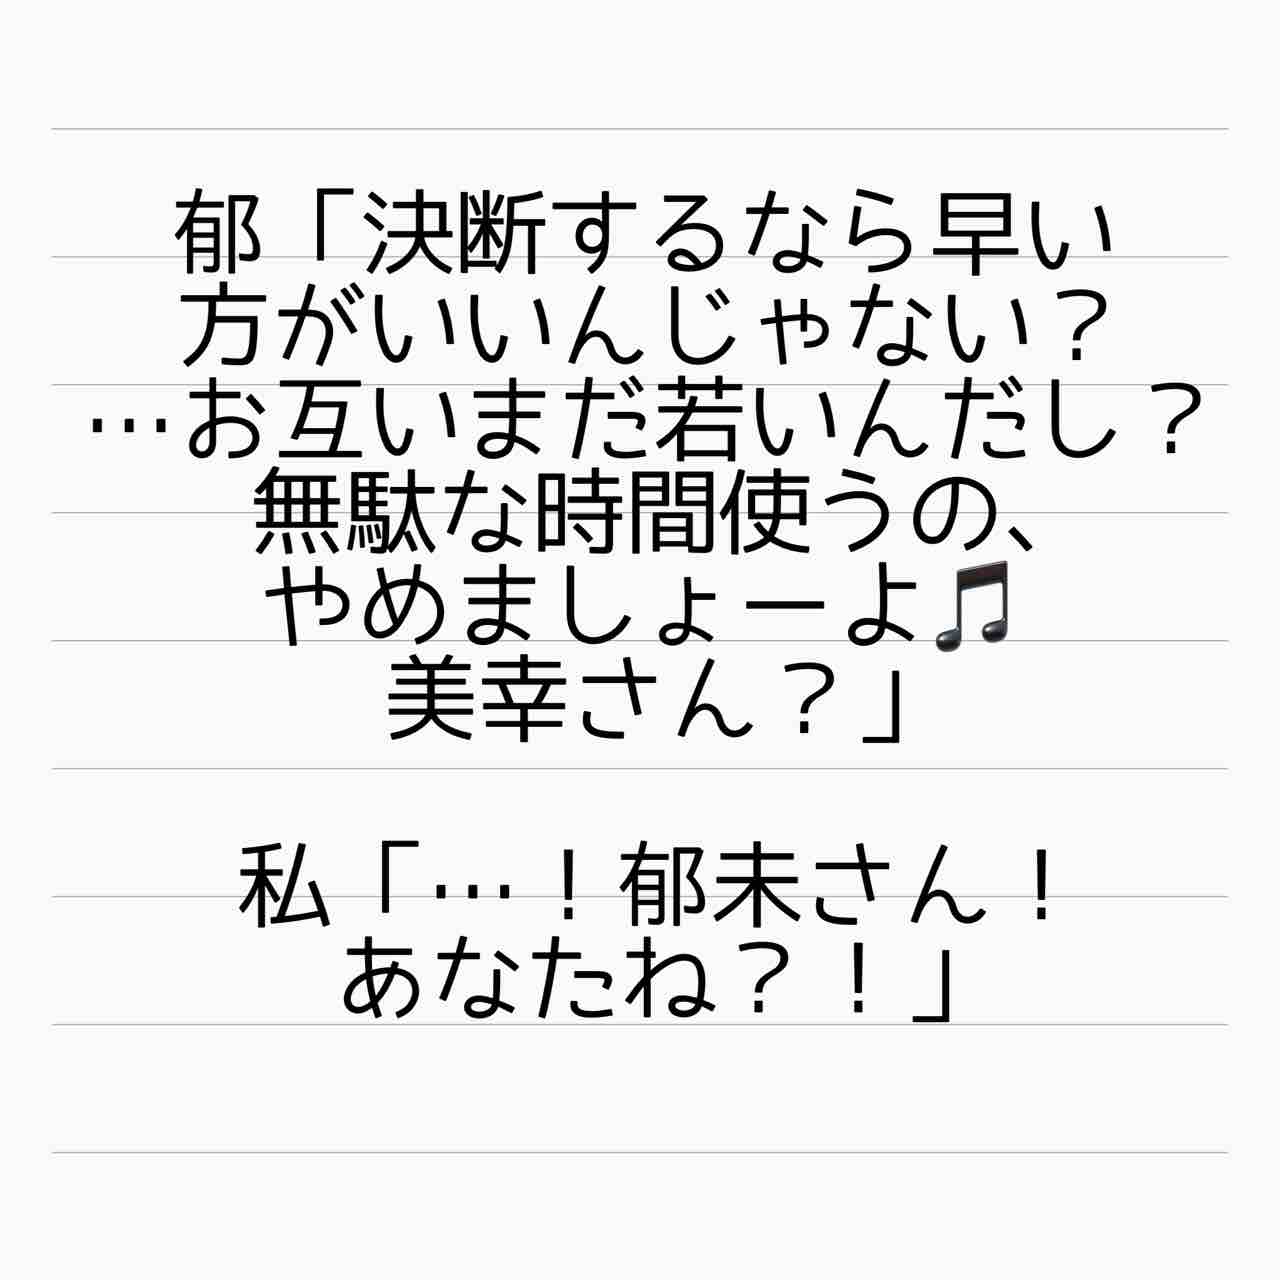 郁「決断するなら早い
方がいいんじゃない？
…お互いまだ若いんだし？
無駄な時間使うの、
やめましょーよ🎵
美幸さん？」
私「…！郁未さん！
あなたね？！」